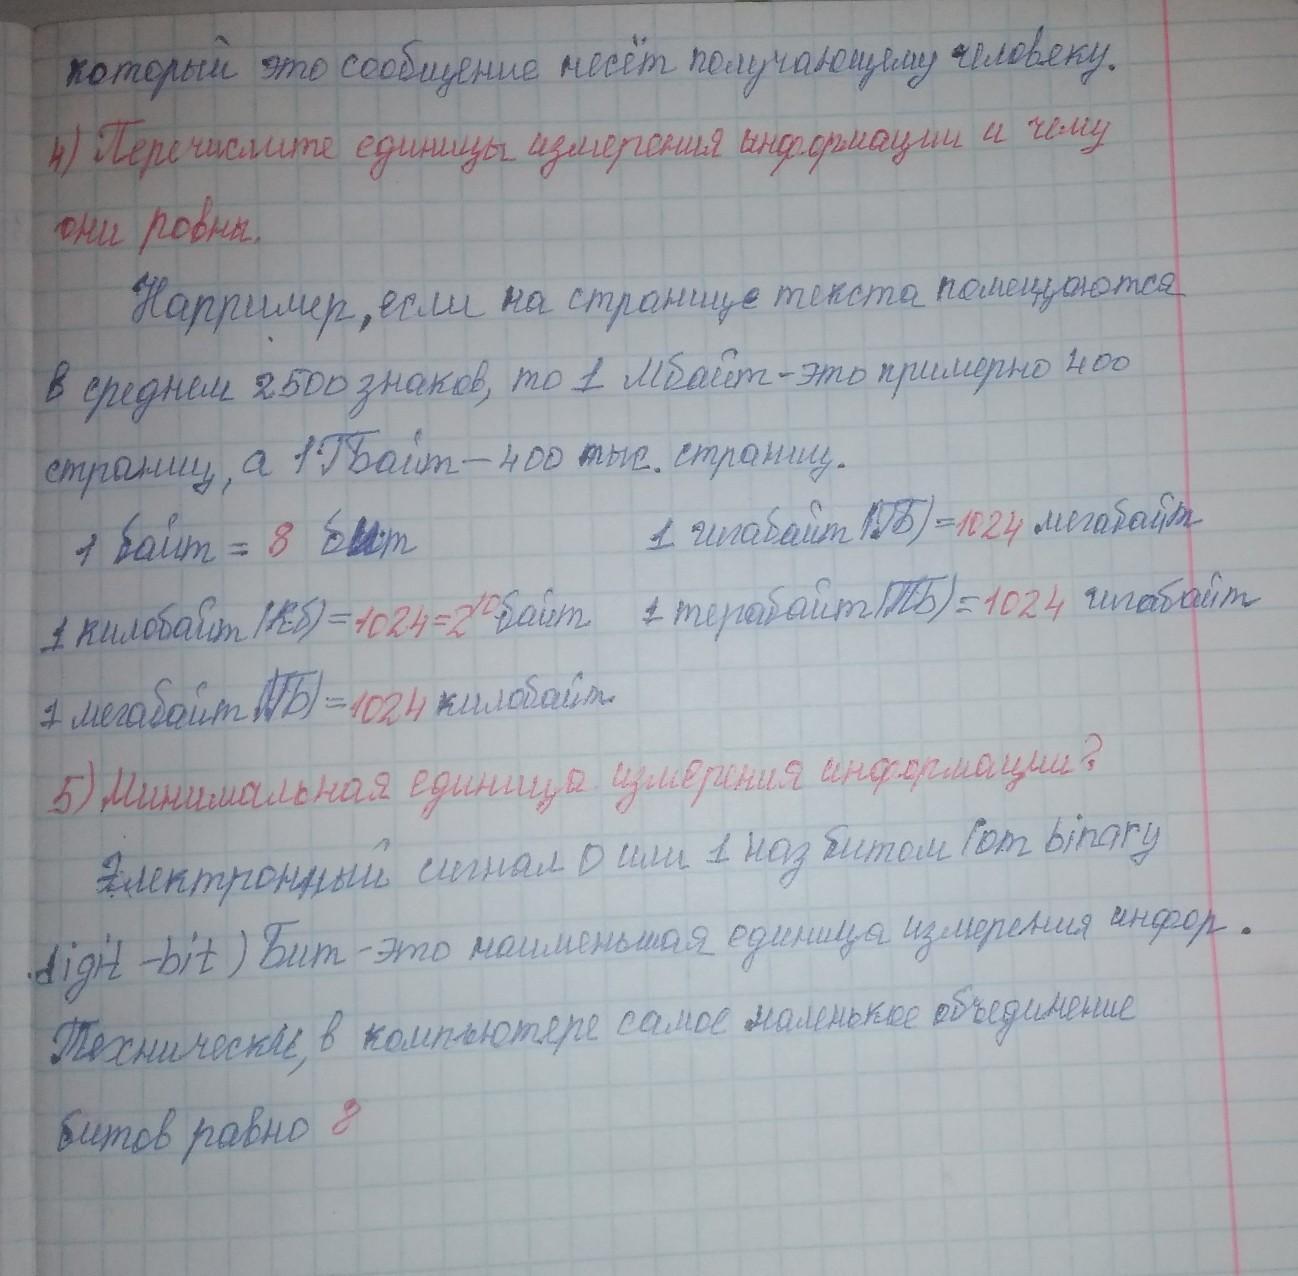 который это сообщение несёт получающему человеку.
4) Перечислите единицы измерения информации и чему
они ровны.
Например, если на странице текста помещаются
в среднем 2500 знаков, то 1 Мбайт - это примерно 400
страниц, а 1 ГБайт - 400 тыс. страниц.
1 байт = 8 бит
1 гигабайт (ГБ) = 1024 мегабайт
1 килобайт (Кб) = 1024 = 2¹⁰ байт
1 терабайт (ТБ) = 1024 гигабайт
1 мегабайт = 1024 килобайт.
5) Минимальная единица измерения информации?
Электронный сигнал 0 или 1 наз битом (от binary
digit - bit) Бит - это наименьшая единица измерения инфор.
Технически, в компьютере самое маленькое объединение
битов равно 8